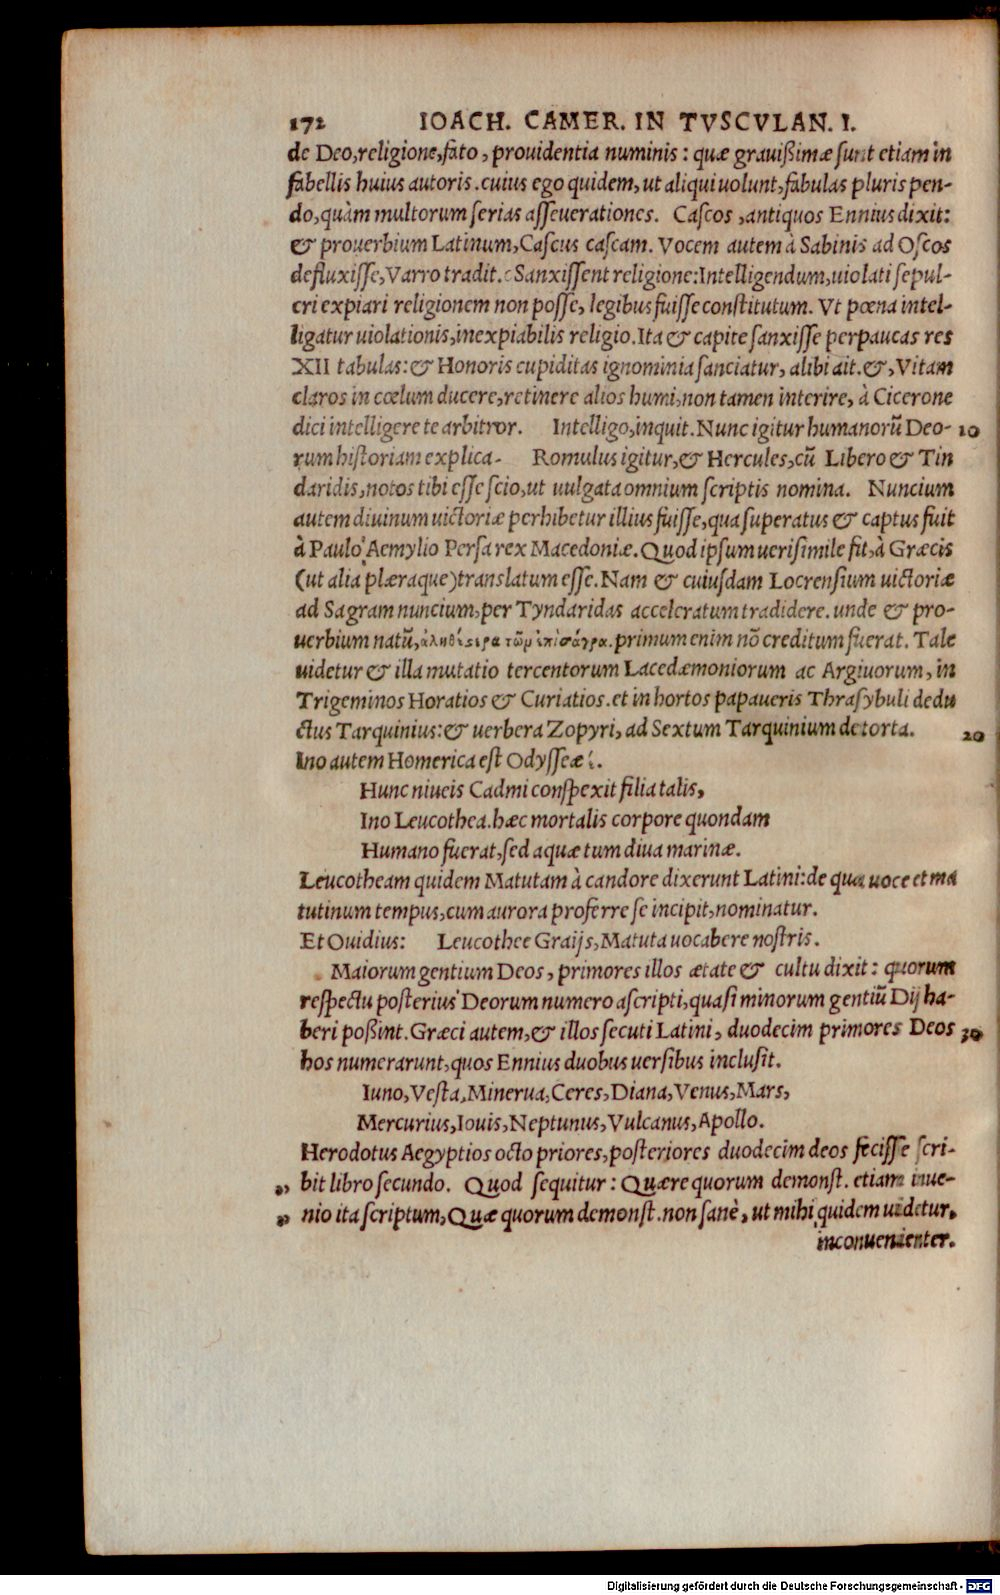 172 IOACH. CAMER. IN TVSCVLAN. I.
de Deo, religione, fato, prouidentia numinis: quæ grauißimæ sunt etiam in
fabellis huius autoris. cuius ego quidem, ut aliqui uolunt, fabulas pluris pen-
do, quàm multorum serias asseuerationes. Cascos, antiquos Ennius dixit:
& prouerbium Latinum, Cascus cascam. Vocem autem à Sabinis ad Oscos
defluxisse, Varro tradit. Sanxissent religione: Intelligendum, uiolati sepul-
cri expiari religionem non posse, legibus fuisse constitutum. Vt pœna intel-
ligatur uiolationis, inexpiabilis religio. Ita & capite sanxisse perpaucas res
XII tabulas: & Honoris cupiditas ignominia sanciatur, alibi ait. &, Vitam
claros in cœlum ducere, retinere alios humi, non tamen interire, à Cicerone
dici intelligere te arbitror. Intelligo, inquit. Nunc igitur humanorũ Deo- 10
rum historiam explica. Romulus igitur, & Hercules, cũ Libero & Tin
daridis, notos tibi esse scio, ut uulgata omnium scriptis nomina. Nuncium
autem diuinum uictoriæ perhibetur illius fuisse, qua superatus & captus fuit
à Paulo Aemylio Persa rex Macedoniæ. Quod ipsum uerisimile fit, à Græcis
(ut alia plæraque) translatum esse. Nam & cuiusdam Locrensium uictoriæ
ad Sagram nuncium, per Tyndaridas acceleratum tradidere. unde & pro-
uerbium natũ, ἀληθέστερα τῶν ἐπὶ σάγρα. primum enim nõ creditum fuerat. Tale
uidetur & illa mutatio tercentorum Lacedæmoniorum ac Argiuorum, in
Trigeminos Horatios & Curiatios. et in hortos papaueris Thrasybuli dedu
ctus Tarquinius: & uerbera Zopyri, ad Sextum Tarquinium detorta. 20
Ino autem Homerica est Odysseæ.
Hunc niueis Cadmi conspexit filia talis,
Ino Leucothea. hæc mortalis corpore quondam
Humano fuerat, sed aquæ tum diua marinæ.
Leucotheam quidem Matutam à candore dixerunt Latini: de qua uoce et ma
tutinum tempus, cum aurora proferre se incipit, nominatur.
Et Ouidius: Leucothee Graijs, Matuta uocabere nostris.
Maiorum gentium Deos, primores illos ætate & cultu dixit: quorum
respectu posterius Deorum numero ascripti, quasi minorum gentiũ Dij ha-
beri poßint. Græci autem, & illos secuti Latini, duodecim primores Deos 30
hos numerarunt, quos Ennius duobus uersibus inclusit.
Iuno, Vesta, Minerua, Ceres, Diana, Venus, Mars,
Mercurius, Iouis, Neptunus, Vulcanus, Apollo.
Herodotus Aegyptios octo priores, posteriores duodecim deos fecisse scri-
„ bit libro secundo. Quod sequitur: Quære quorum demonst. etiam inue-
„ nio ita scriptum, Quæ quorum demonst. non sanè, ut mihi quidem uidetur,
inconuenienter.
Digitalisierung gefördert durch die Deutsche Forschungsgemeinschaft - DFG